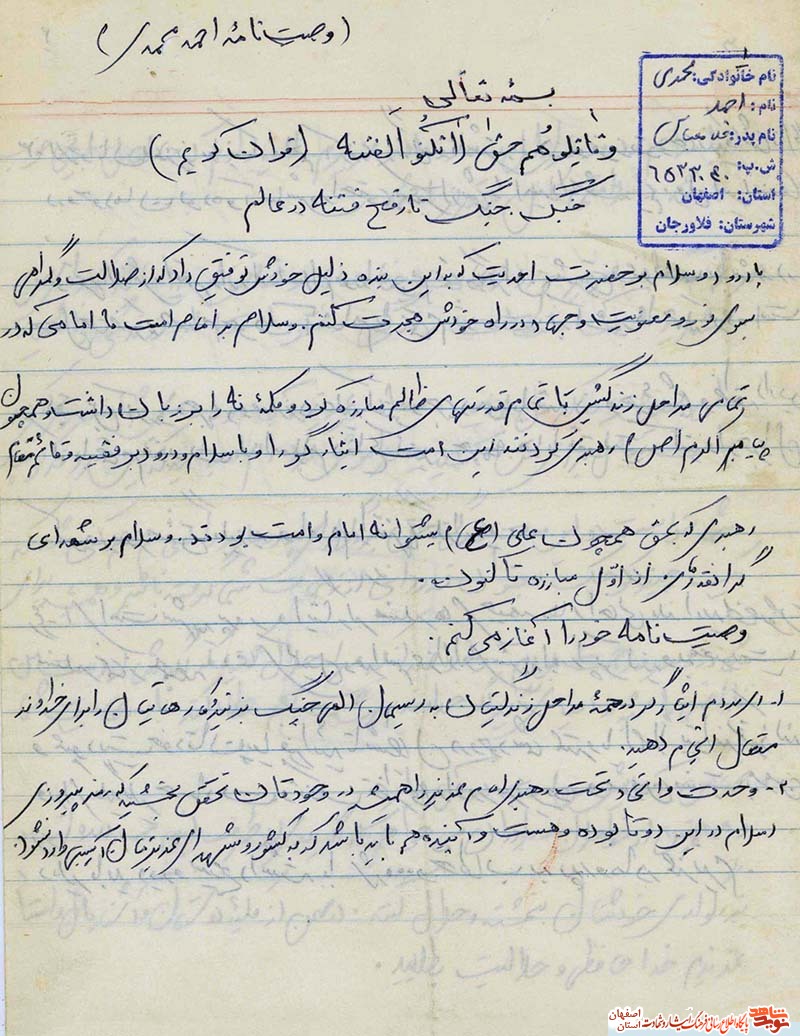 (وصیت نامهٔ احمد محمدی)
نام خانوادگی: محمدی
نام: احمد
نام پدر: عباس
ش.پ:
استان: اصفهان
شهرستان: فلاورجان
بسمه تعالی
وقاتلوهم حتی لاتکنو الفتنه (قران کریم)
جنگ جنگ تا رفع فتنه در عالم
با درود و سلام بر حضرت احدیت که به این بنده ذلیل خودش توفیق داد که از ضلالت و گمراهی
بسوی نور و معنویت و جهاد در راه خودش هجرت کنم. وسلام بر امام امت ما امامی که در
تمامی مراحل زندگیش با تمام قدرتهای ظالم مبارزه کرد و کلمهٔ نه را بر زبان داشت و همچون
پیامبر اکرم (ص) رهبری کردند این امت ایثارگر را و با سلام و درود بر فقیه و قائم مقام
رهبری که بحق همچون علی (ع) پشتوانه امام وامت بودند. وسلام بر شهدای
گرانقدرمان از اوّل مبارزه تا کنون.
وصیت نامه خود را آغاز می کنم.
۱- ای مردم ایثارگر در همهٔ مراحل زندگیتان به ریسمان الهی چنگ بزنید و کارهایتان را برای خداوند
متعال انجام دهید.
۲- وحدت واتحاد تحت رهبری امام عزیز را همیشه در وجودتان تحقق بخشید که رمز پیروزی
اسلام در این دو تا بوده و هست و آینده هم باید باشد که به کشور و شهدای عزیزمان آسیبی وارد نشود.
نوید شاهد
پایگاه اطلاع رسانی فرهنگ ایثار و شهادت
استان اصفهان